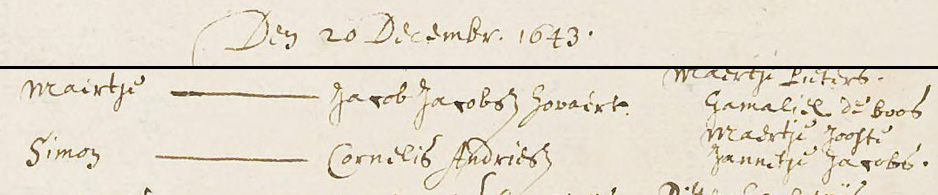 Den 20 Decembr. 1643.
Maertje Pieters.
Maertje — Jacob Jacobsz Govaert. Gamaliel de Boos
Maertje Joosten
Simon — Cornelis Andriesz Jannetje Jacobs.